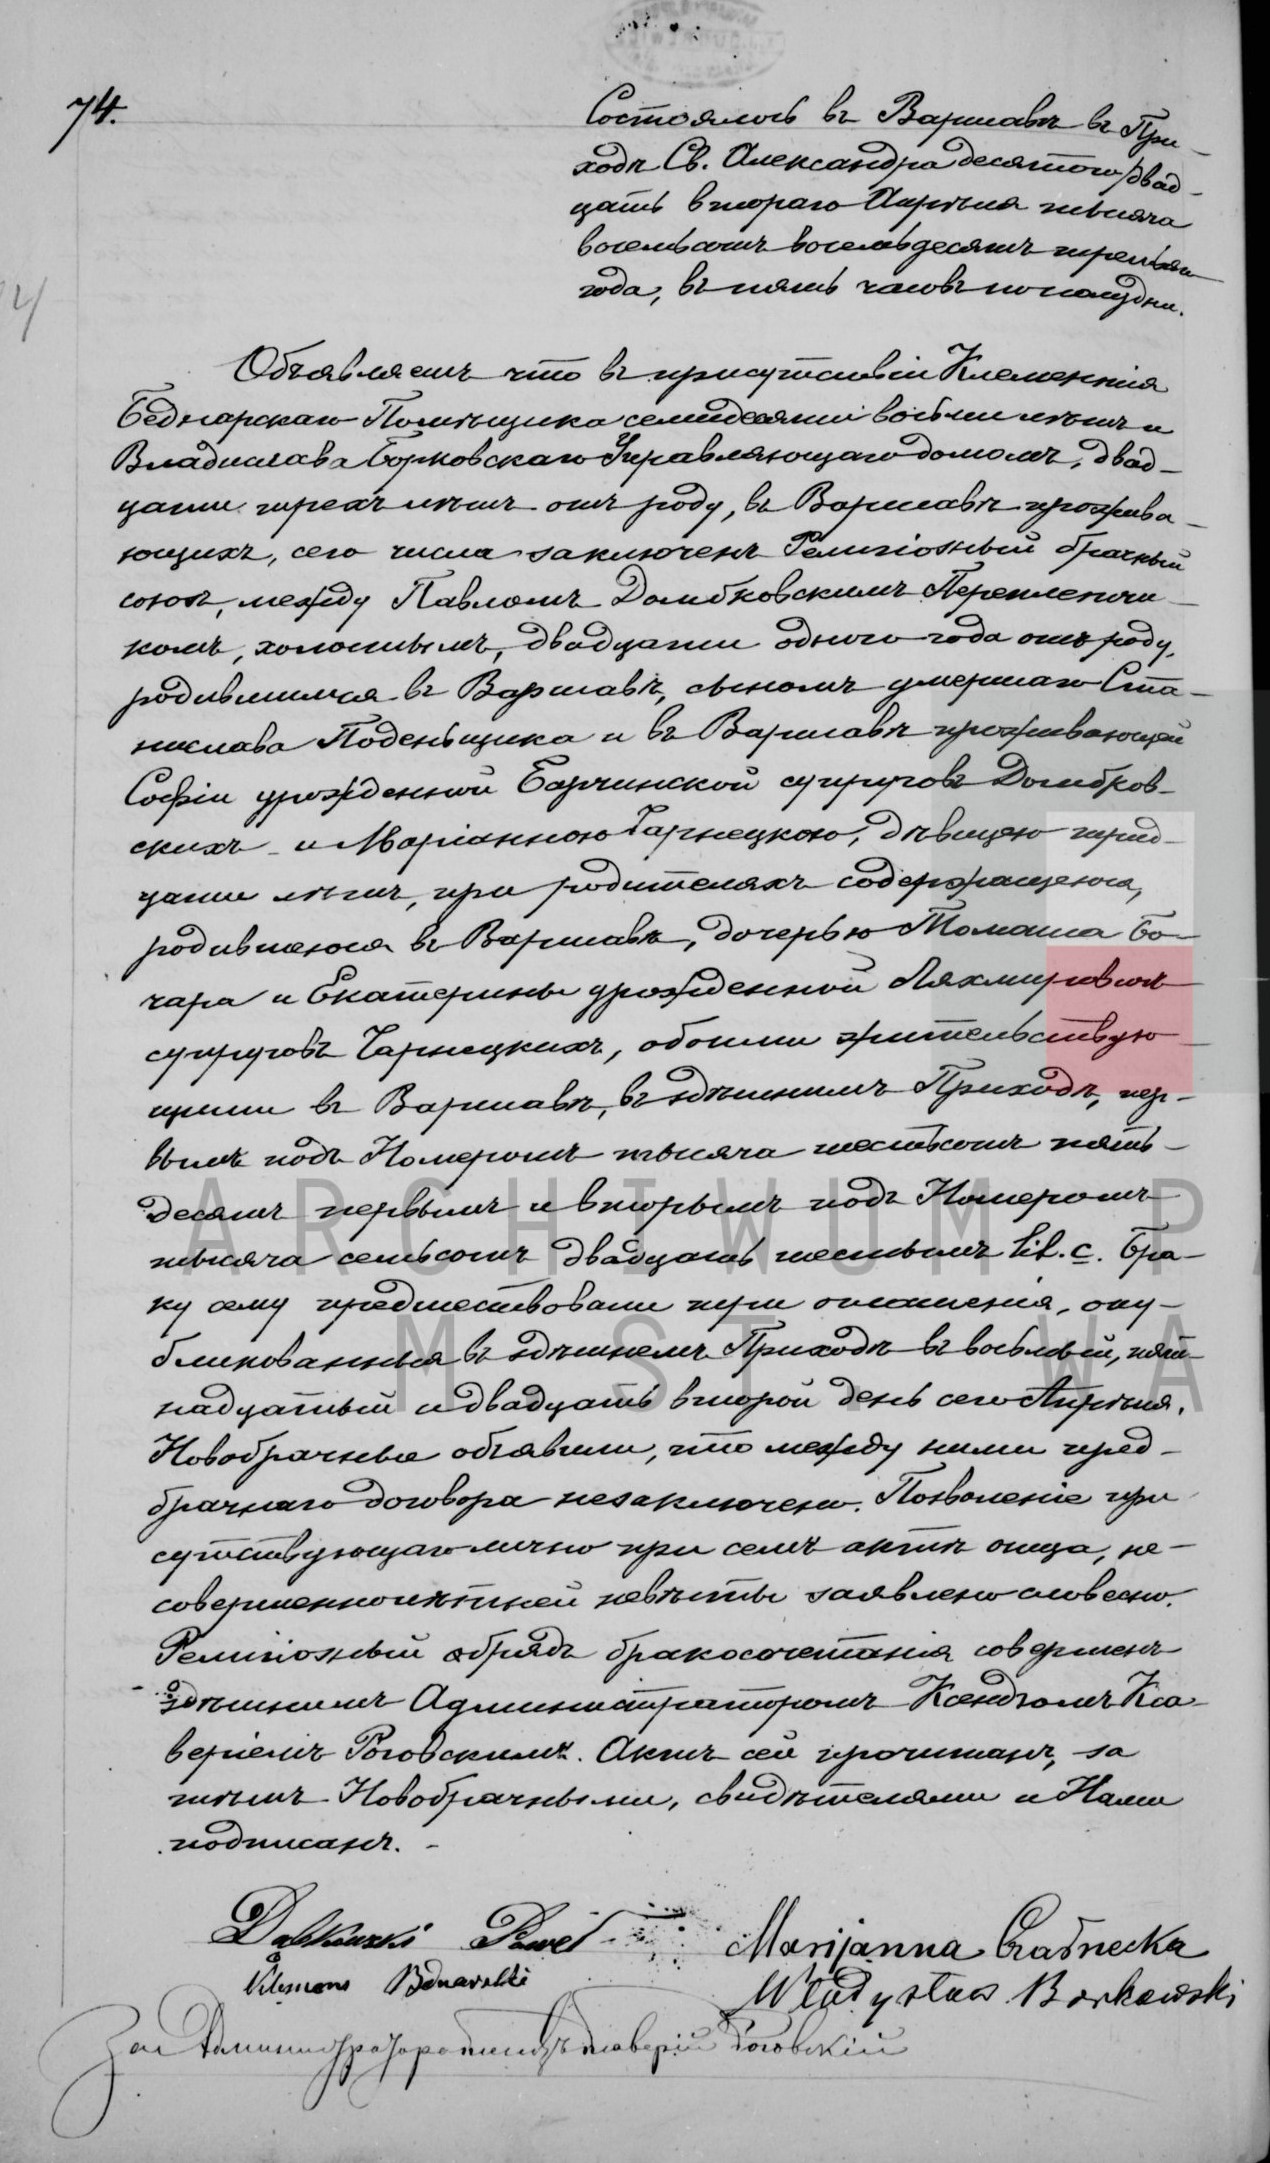 74.
Состоялось въ Варшавѣ въ При-
ходѣ Св. Александра десятого/двад-
цать втораго Апрѣля тысяча
восемьсотъ восемьдесятъ третьяго
года, въ пять часовъ пополудни.
Объявляемъ что въ присутствіи Клементія
Беднарскаго Помѣщика семидесяти восьми лѣтъ и
Владислава Борковскаго Управляющаго домомъ, двад-
цати трехъ лѣтъ отъ роду, въ Варшавѣ прожива-
ющихъ, сего числа заключенъ Религіозный брачный
союзъ, между Павломъ Домбковскимъ Переплетчи-
комъ, холостымъ, двадцати одного года отъ роду,
родившимся въ Варшавѣ, сыномъ умершаго Ста-
нислава Поденьщика и въ Варшавѣ проживающей
Софіи урожденной Барчинской супруговъ Домбков-
скихъ и Маріанною Чарнецкою, дѣвицею
цати лѣтъ, при родителяхъ содержащеюся,
родившеюся въ Варшавѣ, дочерью Томаша Бо-
чара и Екатерины урожденной
супруговъ Чарнецкихъ, обоими жительствую-
щими въ Варшавѣ, въ здѣшнимъ Приходѣ, пер-
вымъ подъ Номеромъ тысяча шестьсотъ пять-
десятъ первымъ и вторымъ подъ Номеромъ
тысяча семьсотъ двадцать шестымъ lit. c. Бра-
ку сему предшествовали три оглашенія, опу-
бликованныя въ здѣшнемъ Приходѣ въ восьмый, пят-
надцатый и двадцать второй день сего Апрѣля.
Новобрачные объявили, что между ними пред-
брачнаго договора незаключено. Позволеніе при
сутствующаго лично при семъ актѣ отца, не-
совершеннолѣтней невѣсты заявлено словесно.
Религіозный обрядъ бракосочетанія совершенъ
здѣшнимъ Администраторомъ Ксендзомъ Кса-
веріемъ Роговскимъ. Актъ сей прочитанъ, за
тѣмъ Новобрачными, свидѣтелями и Нами
подписанъ. -
Dąbkowski Paweł
Marijanna Czarnecka
Klemens Bednarski
Władysław Borkowski
Роговскій
ARCHIWUM P
M ST. WA